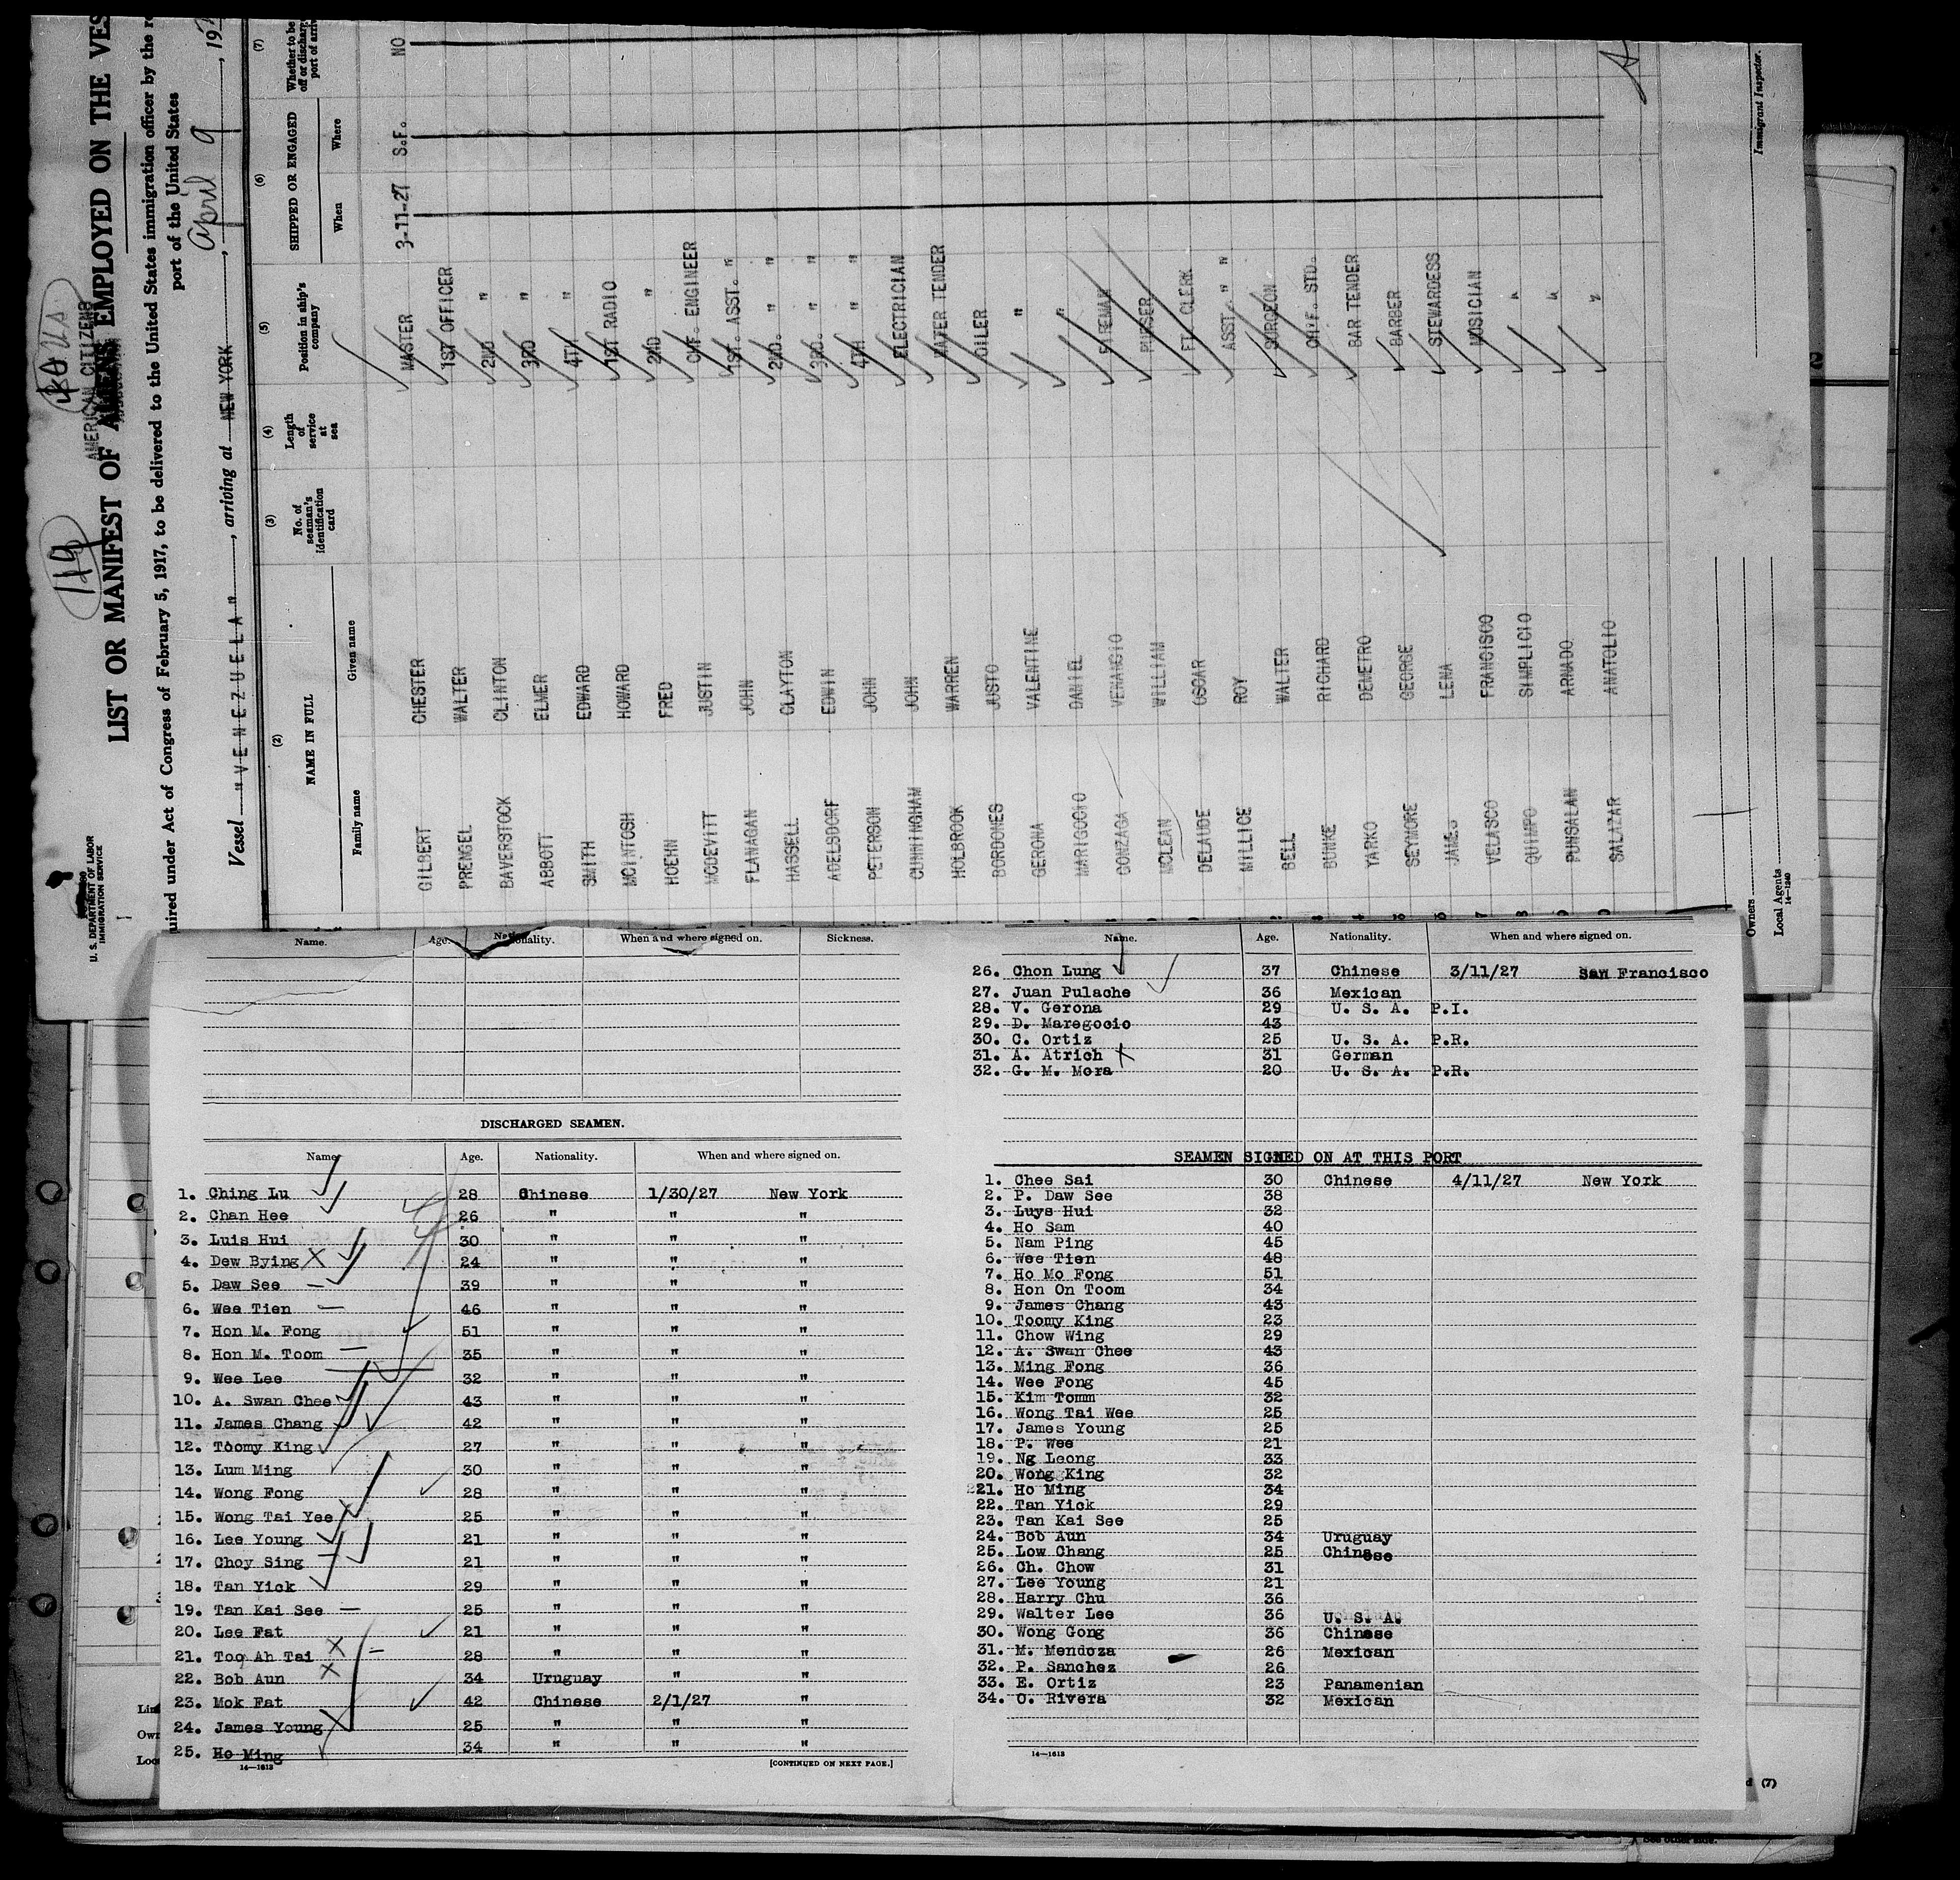 119
U. S. DEPARTMENT OF LABOR
IMMIGRATION SERVICE
AMERICAN CITIZENS
LIST OR MANIFEST OF ALIENS EMPLOYED ON THE VES
uired under Act of Congress of February 5, 1917, to be delivered to the United States immigration officer by the r
port of the United States
Vessel "VENEZUELA", arriving at NEW YORK, April 9, 19
(2) (3) (4) (5) (6) (7)
NAME IN FULL No. of seaman's identification card Length of service at sea Position in ship's company SHIPPED OR ENGAGED Whether to be
off or discharg
port of arriv
Family name Given name When Where
GILBERT CHESTER MASTER 3-11-27 S.F. NO
PRENGEL WALTER 1ST OFFICER
BAVERSTOCK CLINTON 2ND "
ABBOTT ELMER 3RD "
SMITH EDWARD 4TH "
MCINTOSH HOWARD 1ST RADIO
HOEHN FRED 2ND "
MCDEVITT JUSTIN CHF. ENGINEER
FLANAGAN JOHN 1ST. ASST. "
HASSELL CLAYTON 2ND. " "
ADELSDORF EDWIN 3RD. " "
PETERSON JOHN 4TH " "
CUNNINGHAM JOHN ELECTRICIAN
HOLBROOK WARREN WATER TENDER
BORDONES JUSTO OILER
GERONA VALENTINE "
MARIGOCIO DANIEL "
GONZAGA VENANCIO FIREMAN
MCLEAN WILLIAM PURSER
DELAUDE OSCAR FT. CLERK
MILLICE ROY ASST. " "
BELL WALTER SURGEON
BUNKE RICHARD CHF. STD.
YARKO DEMETRO BAR TENDER
SEYMORE GEORGE BARBER
JAMES LENA STEWARDESS
VELASCO FRANCISCO MUSICIAN
QUIMPO SIMPLICIO "
PUNSALAN ARNADO "
SALAZAR ANATOLIO "
Owners
Local Agents
14-1240
Immigrant Inspector.
Name. Age. Nationality. When and where signed on. Sickness.
DISCHARGED SEAMEN.
Name Age. Nationality. When and where signed on.
1. Ching Lu 28 Chinese 1/30/27 New York
2. Chan Hee 26 " " "
3. Luis Hui 30 " " "
4. Dew Bying 24 " " "
5. Daw See 39 " " "
6. Wee Tien 46 " " "
7. Hon M. Fong 51 " " "
8. Hon M. Toom 35 " " "
9. Wee Lee 32 " " "
10. A. Swan Chee 43 " " "
11. James Chang 42 " " "
12. Toomy King 27 " " "
13. Lum Ming 30 " " "
14. Wong Fong 28 " " "
15. Wong Tai Yee 25 " " "
16. Lee Young 21 " " "
17. Choy Sing 21 " " "
18. Tan Yick 29 " " "
19. Tan Kai See 25 " " "
20. Lee Fat 21 " " "
21. Too Ah Tai 28 " " "
22. Bob Aun 34 Uruguay " "
23. Mok Fat 42 Chinese 2/1/27 "
24. James Young 25 " " "
25. Ho Ming 34 " " "
14—1613 [CONTINUED ON NEXT PAGE.]
Name. Age. Nationality. When and where signed on.
26. Chon Lung 37 Chinese 3/11/27 San Francisco
27. Juan Pulache 36 Mexican
28. V. Gerona 29 U. S. A. P.I.
29. D. Maregocio 43
30. C. Ortiz 25 U. S. A. P.R.
31. A. Atrich 31 German
32. G. M. Mora 20 U. S. A. P.R.
SEAMEN SIGNED ON AT THIS PORT
1. Chee Sai 30 Chinese 4/11/27 New York
2. P. Daw See 38
3. Luys Hui 32
4. Ho Sam 40
5. Nam Ping 45
6. Wee Tien 48
7. Ho Mo Fong 51
8. Hon On Toom 34
9. James Chang 43
10. Toomy King 23
11. Chow Wing 29
12. A. Swan Chee 43
13. Ming Fong 36
14. Wee Fong 45
15. Kim Tomm 32
16. Wong Tai Wee 25
17. James Young 25
18. P. Wee 21
19. Ng Leong 33
20. Wong King 32
21. Ho Ming 34
22. Tan Yick 29
23. Tan Kai See 25
24. Bob Aun 34 Uruguay
25. Low Chang 25 Chinese
26. Ch. Chow 31
27. Lee Young 21
28. Harry Chu 36
29. Walter Lee 36 U. S. A.
30. Wong Gong 36 Chinese
31. M. Mendoza 26 Mexican
32. P. Sanchez 26
33. E. Ortiz 23 Panamenian
34. O. Rivera 32 Mexican
14—1613
See other side.